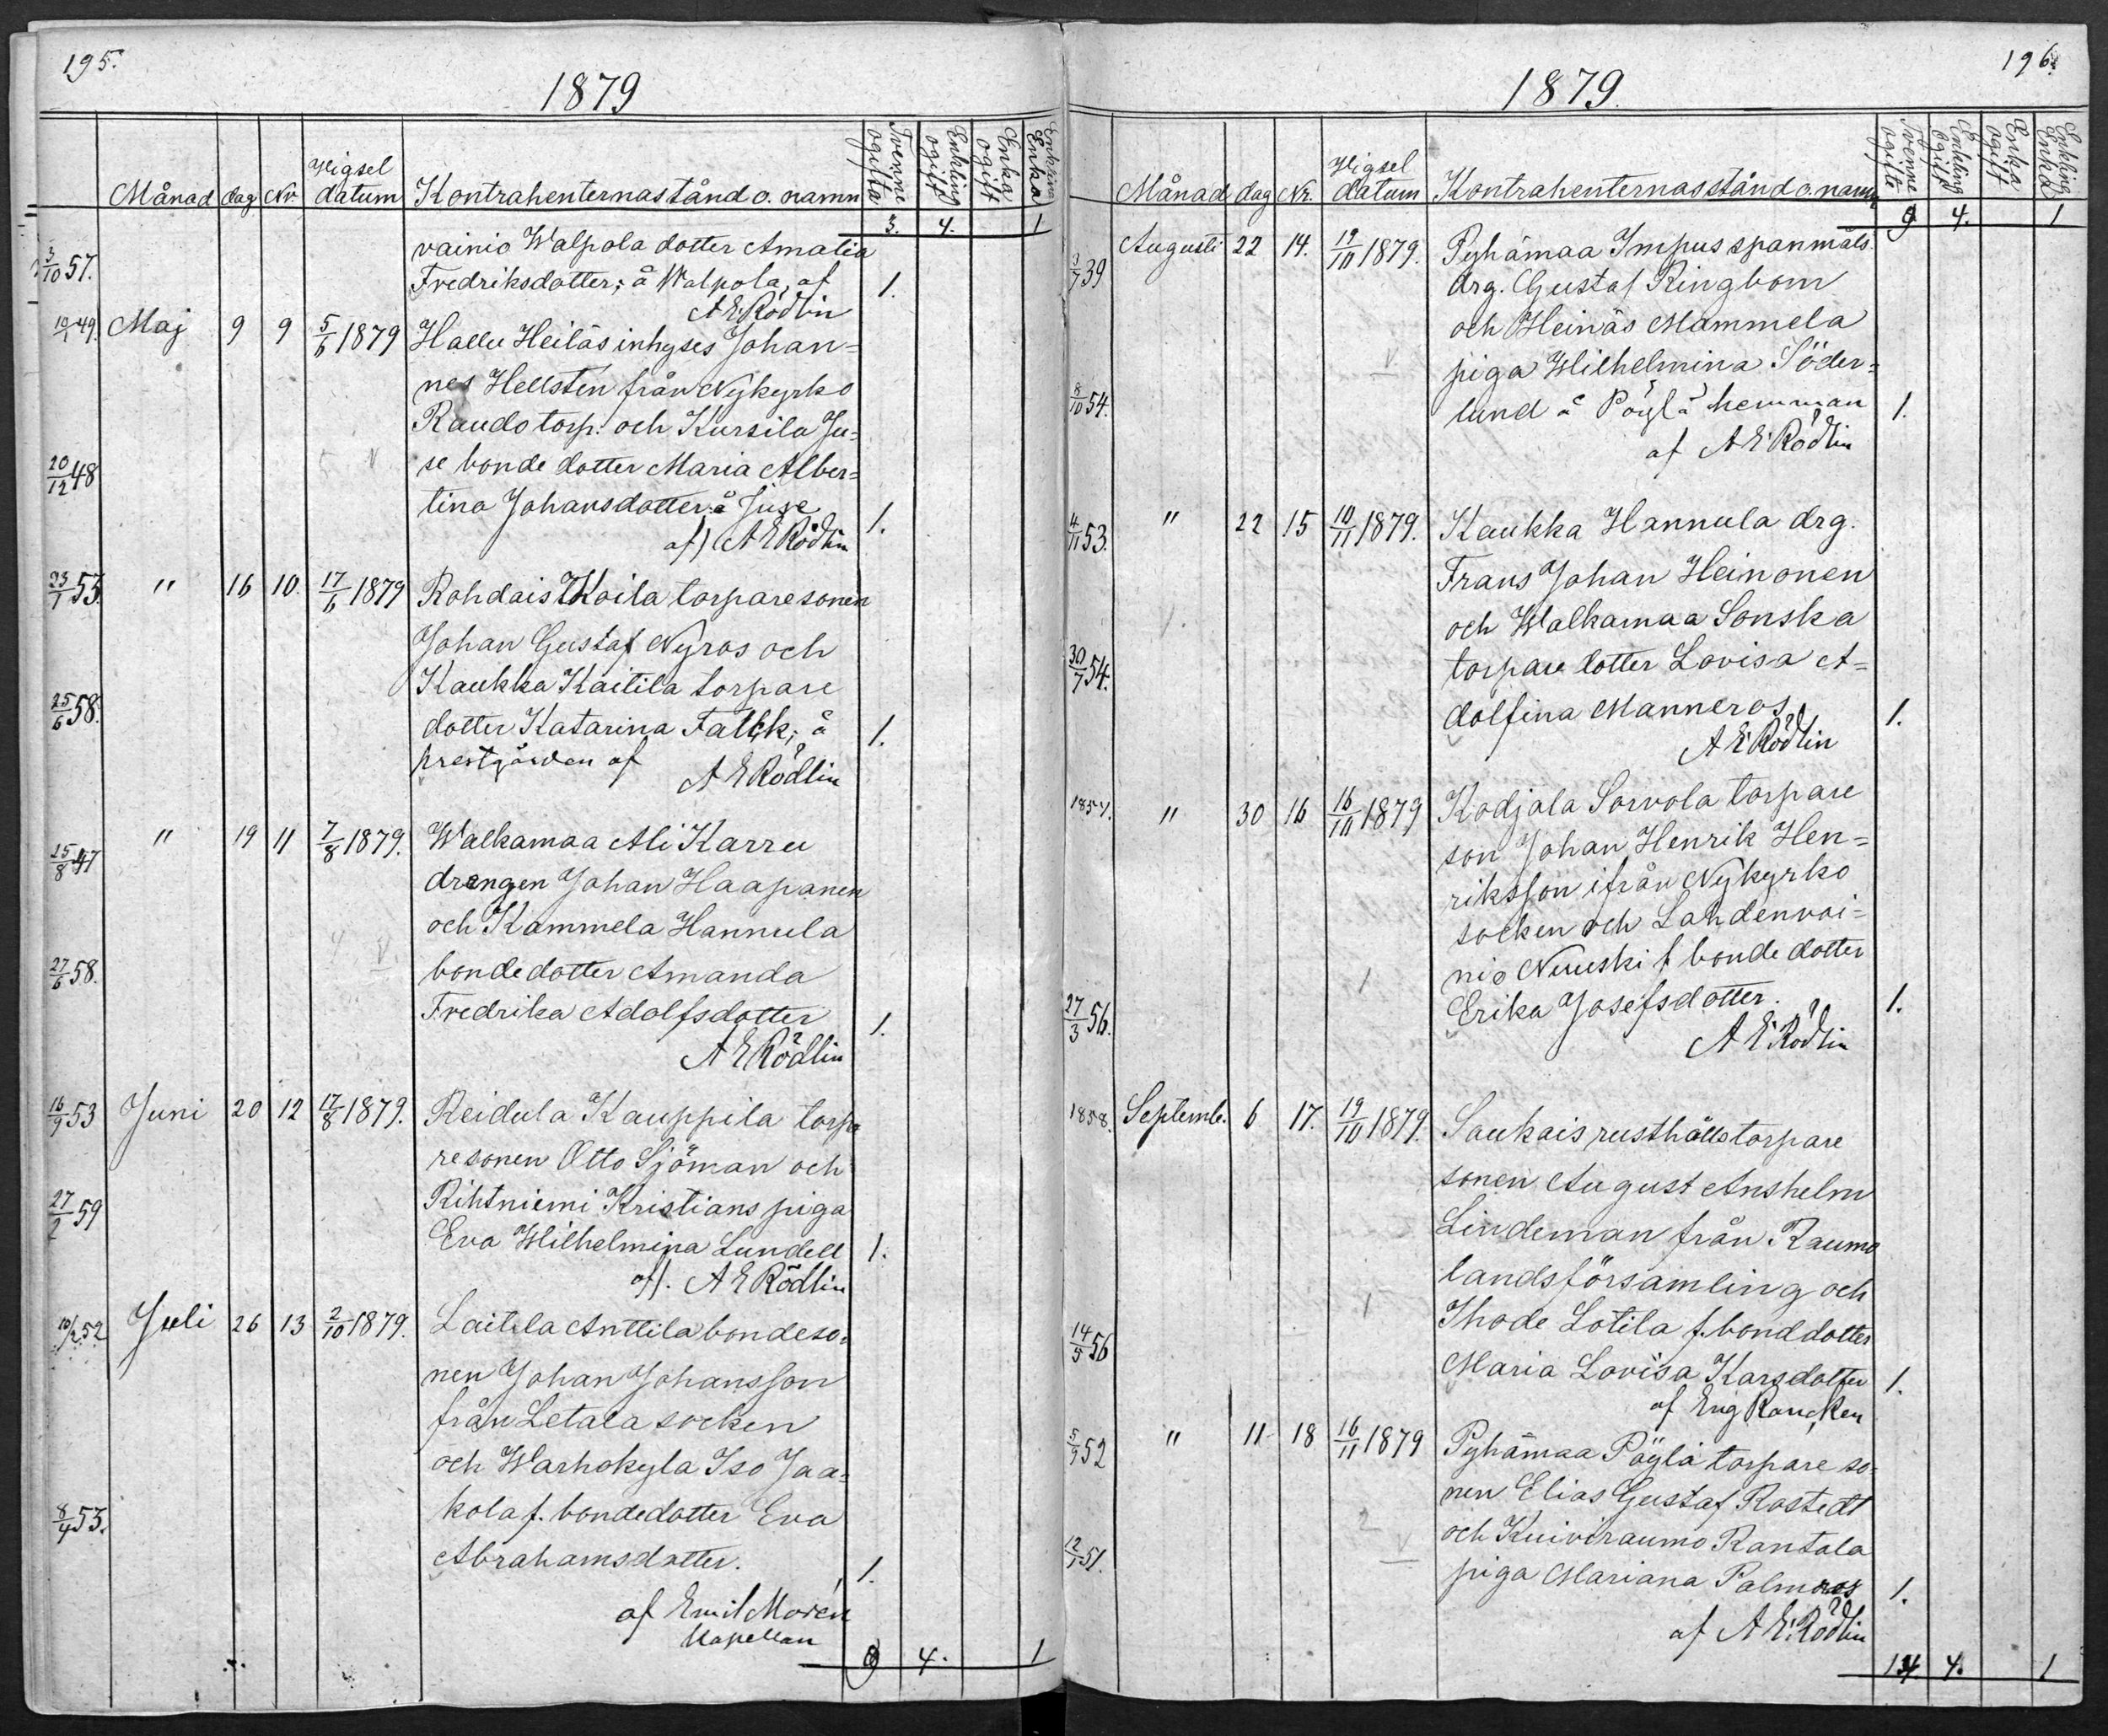 195.
1879
Månad dag Nr. Vigsel datum Kontrahenternas stånd o. namn Tvenne ogifta Enkling ogift Enka ogift Enkling Enka
3. 4. 1
3/10 57. vainio Walpola dotter Amalia
Fredriksdotter; å Walpola, af 1.
A E Rödlin
10/1 49. Maj 9 9 5/6 1879 Hallu Heiläs inhyses Johan=
nes Hellsten från Nykyrko
Raudo torp. och Kursila Ju=
20/12 48 se bonde dotter Maria Alber=
tina Johansdotter å Juse 1.
af) A E Rödlin
23/1 53. " 16 10. 17/6 1879 Rohdais Koila torparesonen
Johan Gustaf Nyros och
Kaukka Kaitila torpare
25/6 58. dotter Katarina Falck; å 1.
prestgården af
A E Rödlin
25/8 47 " 19 11 7/8 1879. Walkamaa Ali Karru
drengen Johan Haapanen
och Kammela Hannula
27/6 58. bondedotter Amanda
Fredrika Adolfsdotter 1.
A E Rödlin
16/9 53 Juni 20 12 17/8 1879. Reidula Kauppila torpa
resonen Otto Sjöman och
27/2 59 Rihtniemi Kristians piga
Eva Wilhelmina Lundell 1.
af). A E Rödlin
10/2 52 Juli 26 13 2/10 1879. Laitila Anttila bondeso=
nen Johan Johansson
från Letala socken
och Warhokyla Iso Jaa=
8/4 53. kola f. bondedotter Eva
Abrahamsdotter. 1.
af Emil Morén
Kapellan
9 4. 1
196.
1879.
Månad dag Nr. Vigsel datum Kontrahenternas stånd o. namn Tvenne ogifte Enkling Ogift Enka ogift Enkling Enka
9 4. 1
3/7 39 Augusti 22 14. 19/10 1879. Pyhämaa Impus spanmåls
drg. Gustaf Ringbom
och Heinäs Mammela
piga Wilhelmina Söder=
8/10 54. lund å Pöylä hemman 1.
af A E Rödlin
4/11 53. " 22 15 10/11 1879. Kaukka Hannula drg.
Frans Johan Heinonen
och Walkamaa Sonska
30/7 54. torpare dotter Lovisa A=
dolfina Manneros 1.
A E Rödlin
1857. " 30 16 16/10 1879 Kodjala Sorvola torpare
son Johan Henrik Hen=
riksson ifrån Nykyrko
socken och Lahdenvai=
nio Nuuski f bonde dotter
27/3 56. Erika Josefsdotter. 1.
A E Rödlin
1858. Septembr. 6 17. 19/10 1879. Saukais rusthållstorpare
sonen August Anshelm
Lindeman från Raumo
landsförsamling och
14/5 56 Ihode Lotila f. bonddotter
Maria Lovisa Karsdotter 1.
af Eug Rancken
5/9 52 " 11 18 16/11 1879 Pyhämaa Pöylä torpare so=
nen Elias Gustaf Rostedt
2
och Kuiviraumo Rantala
12/1 51. piga Mariana Palmros 1.
af A E Rödlin
14 4. 1